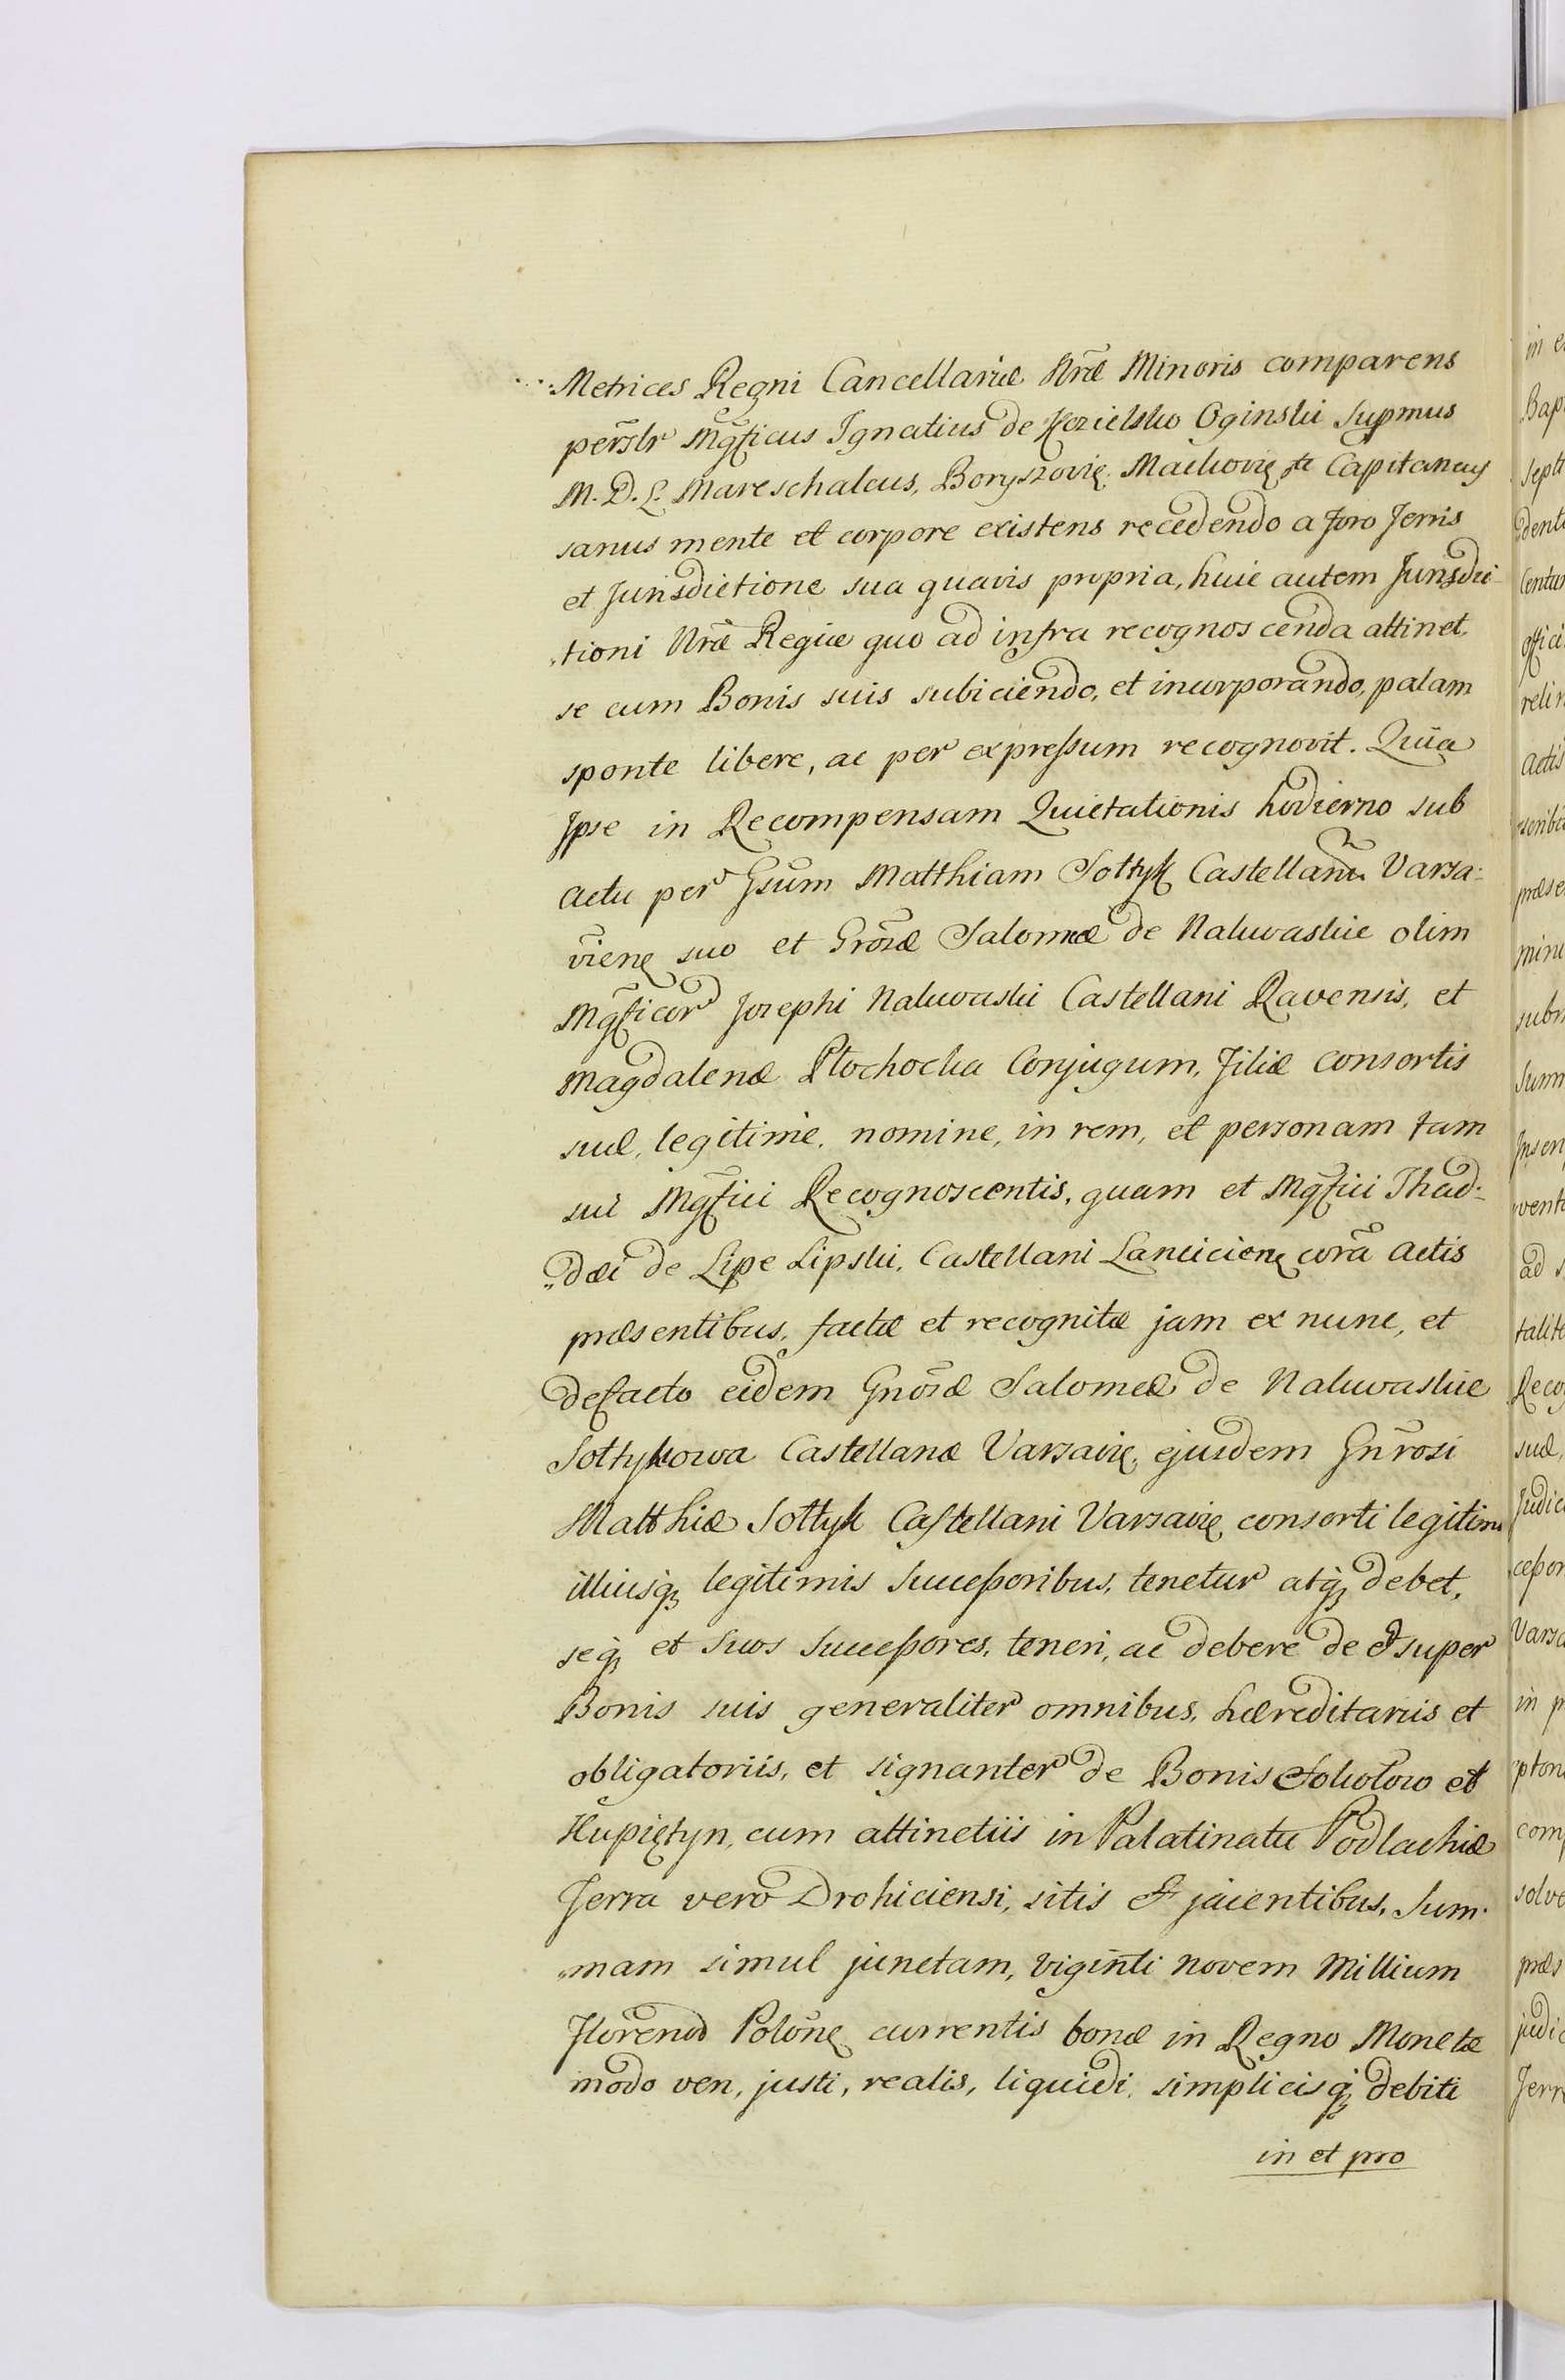 Metrices Regni Cancellariæ Nræ Minoris comparens
persłr Mgficus Ignatius de Kozielsko Oginski Supmus
M. D. L. Mareschalcus, Boryszovię, Maikovię et Capitaneus
sanus mente et corpore existens recedendo a foro Terris
et Jurisdictione sua quavis propria, huic autem Jurisdic-
tioni Nræ Regiæ quo ad infra recognoscenda attinet,
se cum Bonis suis subiciendo, et incorporando, palam
sponte libere, ac per expressum recognovit. Quia
Ipse in Recompensam Quietationis hodierno sub
actu per Gsum Matthiam Sołtyk Castellanu Varsa-
viens suo et Grosæ Salomeæ de Nakwaskie olim
Mgficor Josephi Nakwaski Castellani Ravensis, et
Magdalenæ Płochocka Conjugum, Filiæ consortis
suæ, legitimæ, nomine, in rem, et personam tam
sui Mgfici Recognoscentis, quam et Mgfici Thad-
dæi de Lipe Lipski, Castellani Lanciciens corã actis
præsentibus, factæ et recognitæ jam ex nunc, et
defacto eidem Gnosæ Salomeæ de Nakwaskie
Sołtykowa Castellanæ Varsavię, ejusdem Gnrosi
Matthiæ Sołtyk Castellani Varsavię consorti legitimæ
illiusq legitimis Successoribus, tenetur atq debet,
seq et suos Successores, teneri, ac debere de et super
Bonis suis generaliter omnibus, hæreditariis et
obligatoriis, et signanter de Bonis Sokołow et
Kupiętyn, cum attinetiis in Palatinatu Podlachiæ
Terra vero Drohiciensi, sitis et jacentibus, Sum-
mam simul junctam, viginti novem Millium
Florenor Polone currentis bonæ in Regno Monetæ
modo veri, justi, realis, liquidi, simplicisq debiti
in et pro